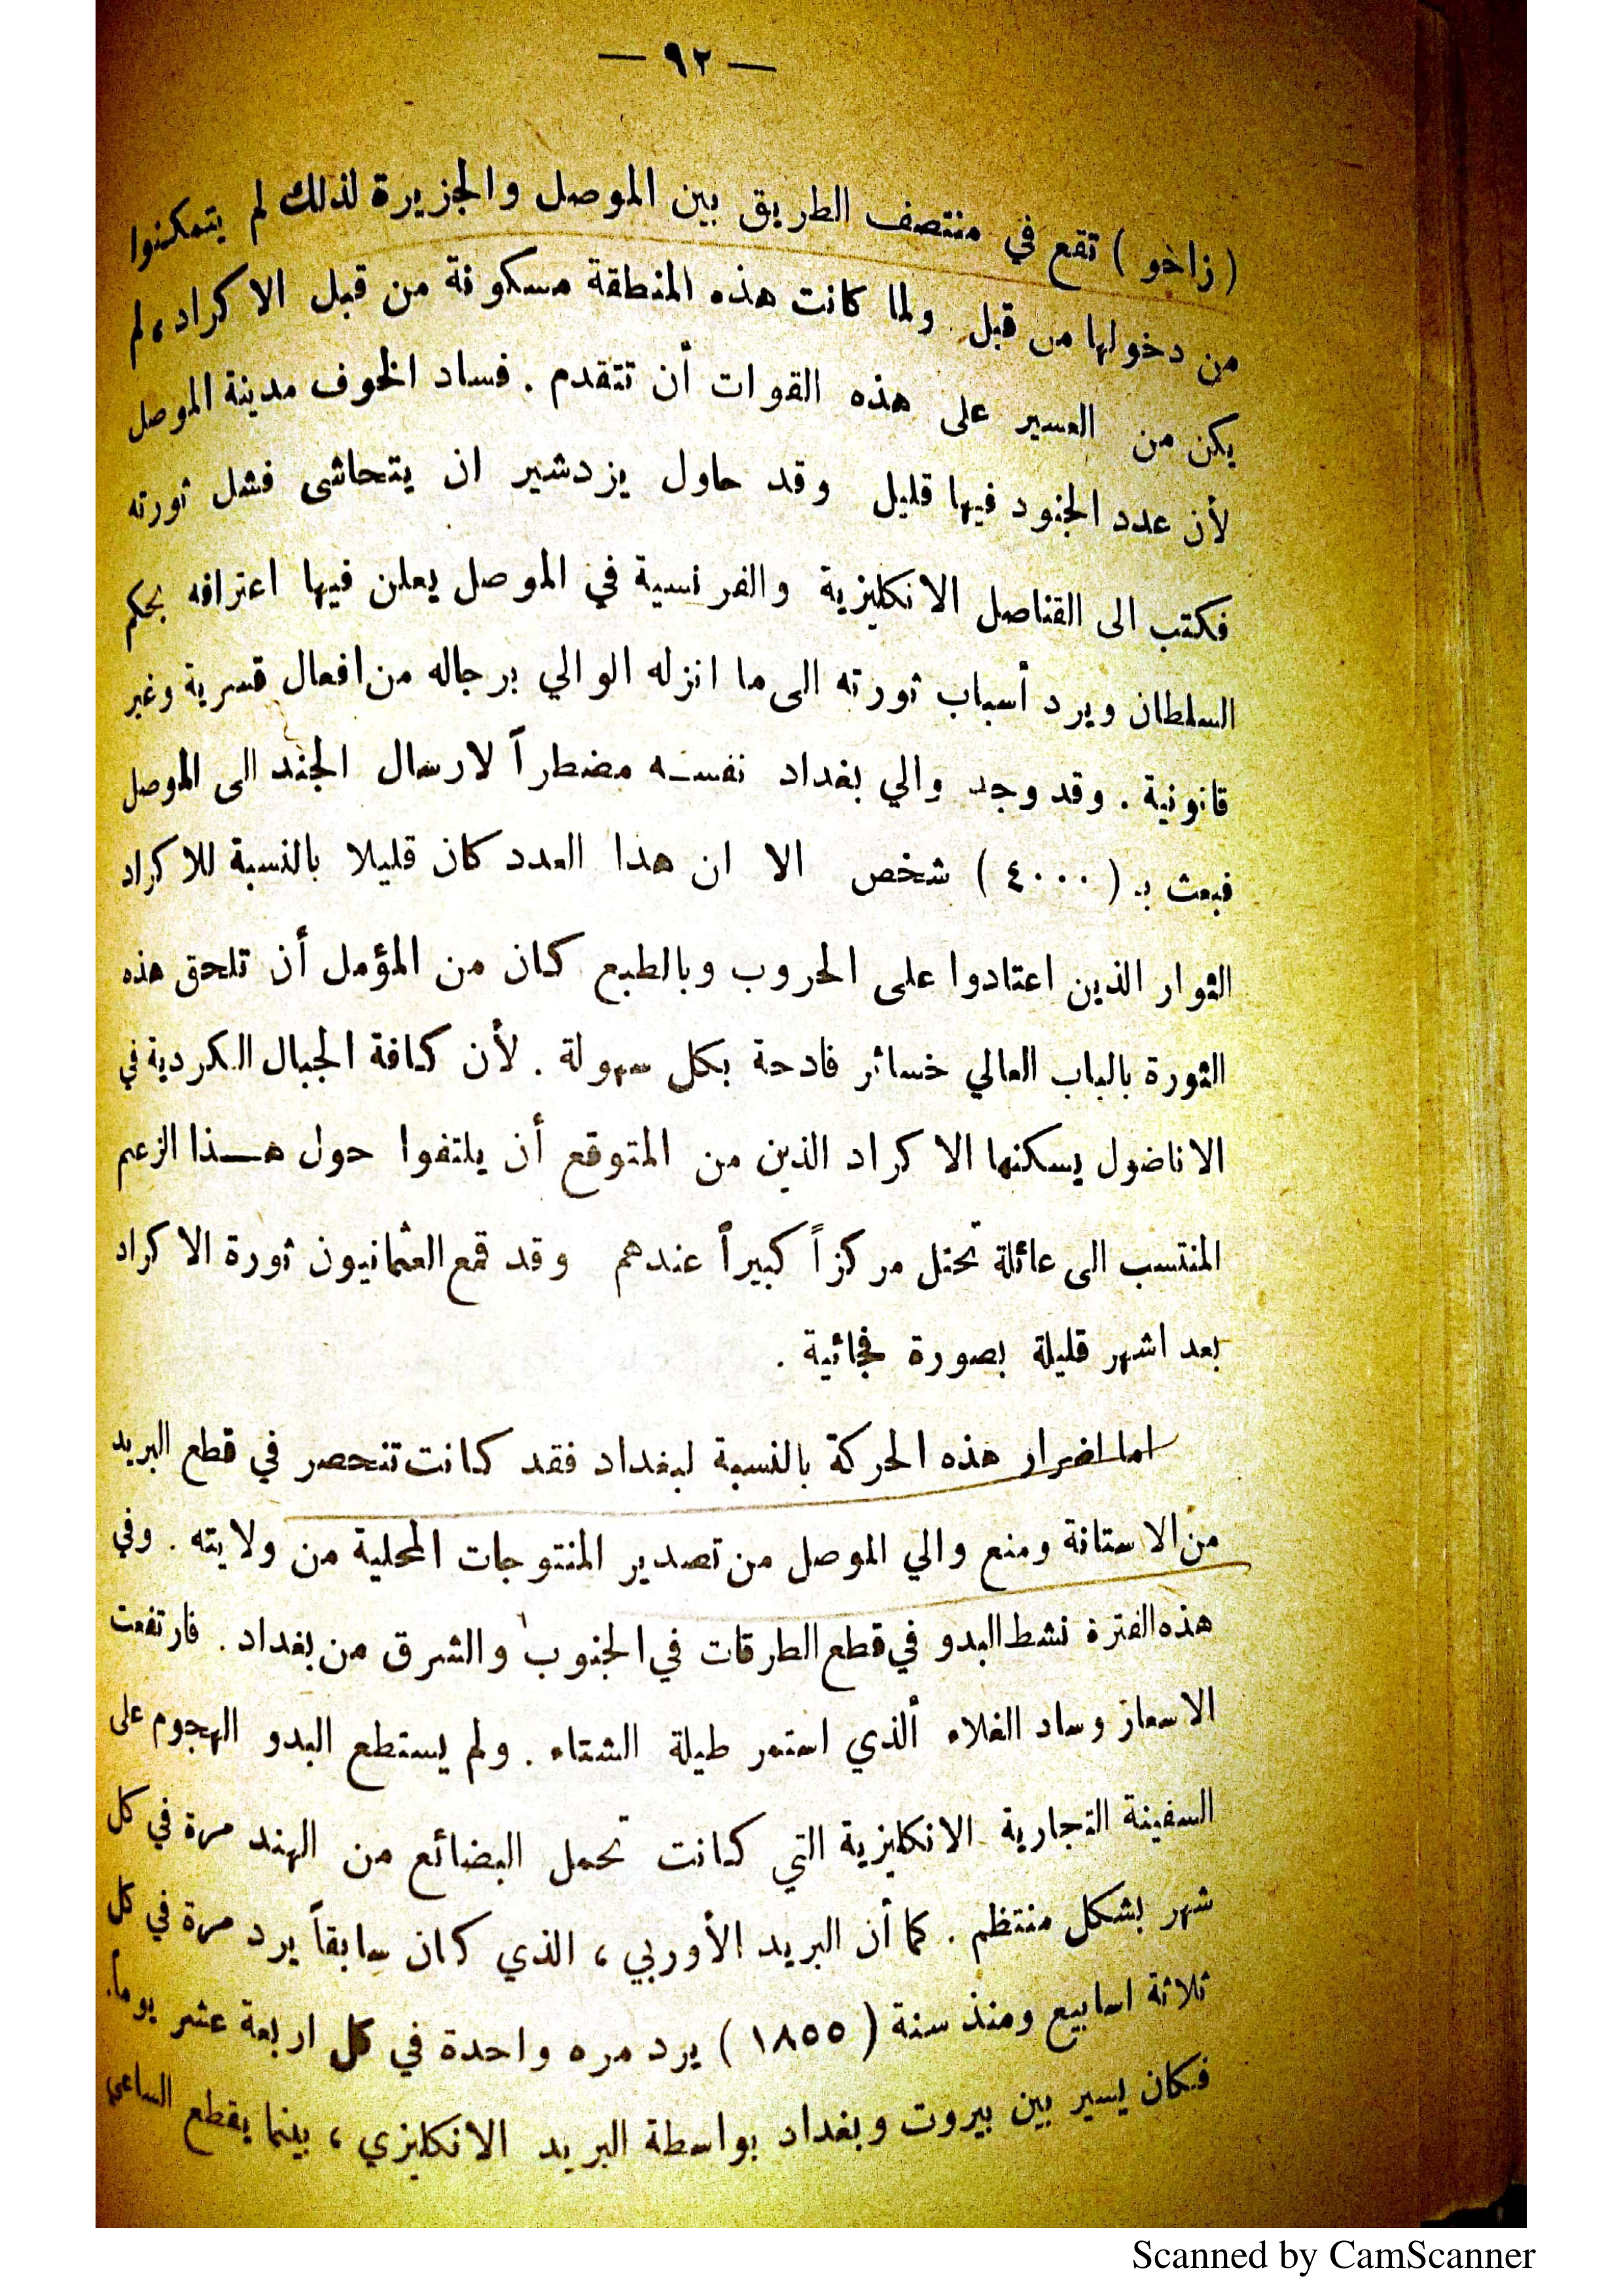 — ٩٢ —
( زاخو ) تقع في منتصف الطريق بين الموصل والجزيرة لذلك لم يتمكنوا
من دخولها من قبل ولما كانت هذه المنطقة مسكونة من قبل الاكراد، لم
يكن من العسير على هذه القوات أن تتقدم . فساد الخوف مدينة الموصل
لأن عدد الجنود فيها قليل وقد حاول يزدشير ان يتحاشى فشل ثورته
فكتب الى القناصل الانكليزية والفرنسية في الموصل يعلن فيها اعترافه بحكم
السلطان ويرد أسباب ثورته الى ما انزله الوالي برجاله من افعال قسرية وغير
قانونية . وقد وجد والي بغداد نفسه مضطراً لارسال الجند الى الموصل
فبعث بـ ( ٤٠٠٠ ) شخص الا ان هذا العدد كان قليلا بالنسبة للاكراد
الثوار الذين اعتادوا على الحروب وبالطبع كان من المؤمل أن تلحق هذه
الثورة بالباب العالي خسائر فادحة بكل سهولة . لأن كافة الجبال الكردية في
الاناضول يسكنها الاكراد الذين من المتوقع أن يلتفوا حول هـذا الزعيم
المنتسب الى عائلة تحتل مركزاً كبيراً عندهم وقد قمع العثمانيون ثورة الاكراد
بعد اشهر قليلة بصورة فجائية .
اما اضرار هذه الحركة بالنسبة لبغداد فقد كانت تنحصر في قطع البريد
من الاستانة ومنع والي الموصل من تصدير المنتوجات المحلية من ولايته . وفي
هذه الفترة نشط البدو في قطع الطرقات في الجنوب والشرق من بغداد . فارتفعت
الاسعار وساد الغلاء ألذي استمر طيلة الشتاء . ولم يستطع البدو الهجوم على
السفينة التجارية الانكليزية التي كانت تحمل البضائع من الهند مرة في كل
شهر بشكل منتظم . كما أن البريد الأوربي ، الذي كان سابقاً يرد مرة في كل
ثلاثة اسابيع ومنذ سنة ( ١٨٥٥ ) يرد مره واحدة في كل اربعة عشر يوماً.
فكان يسير بين بيروت وبغداد بواسطة البريد الانكليزي ، بينما يقطع الساعي
Scanned by CamScanner